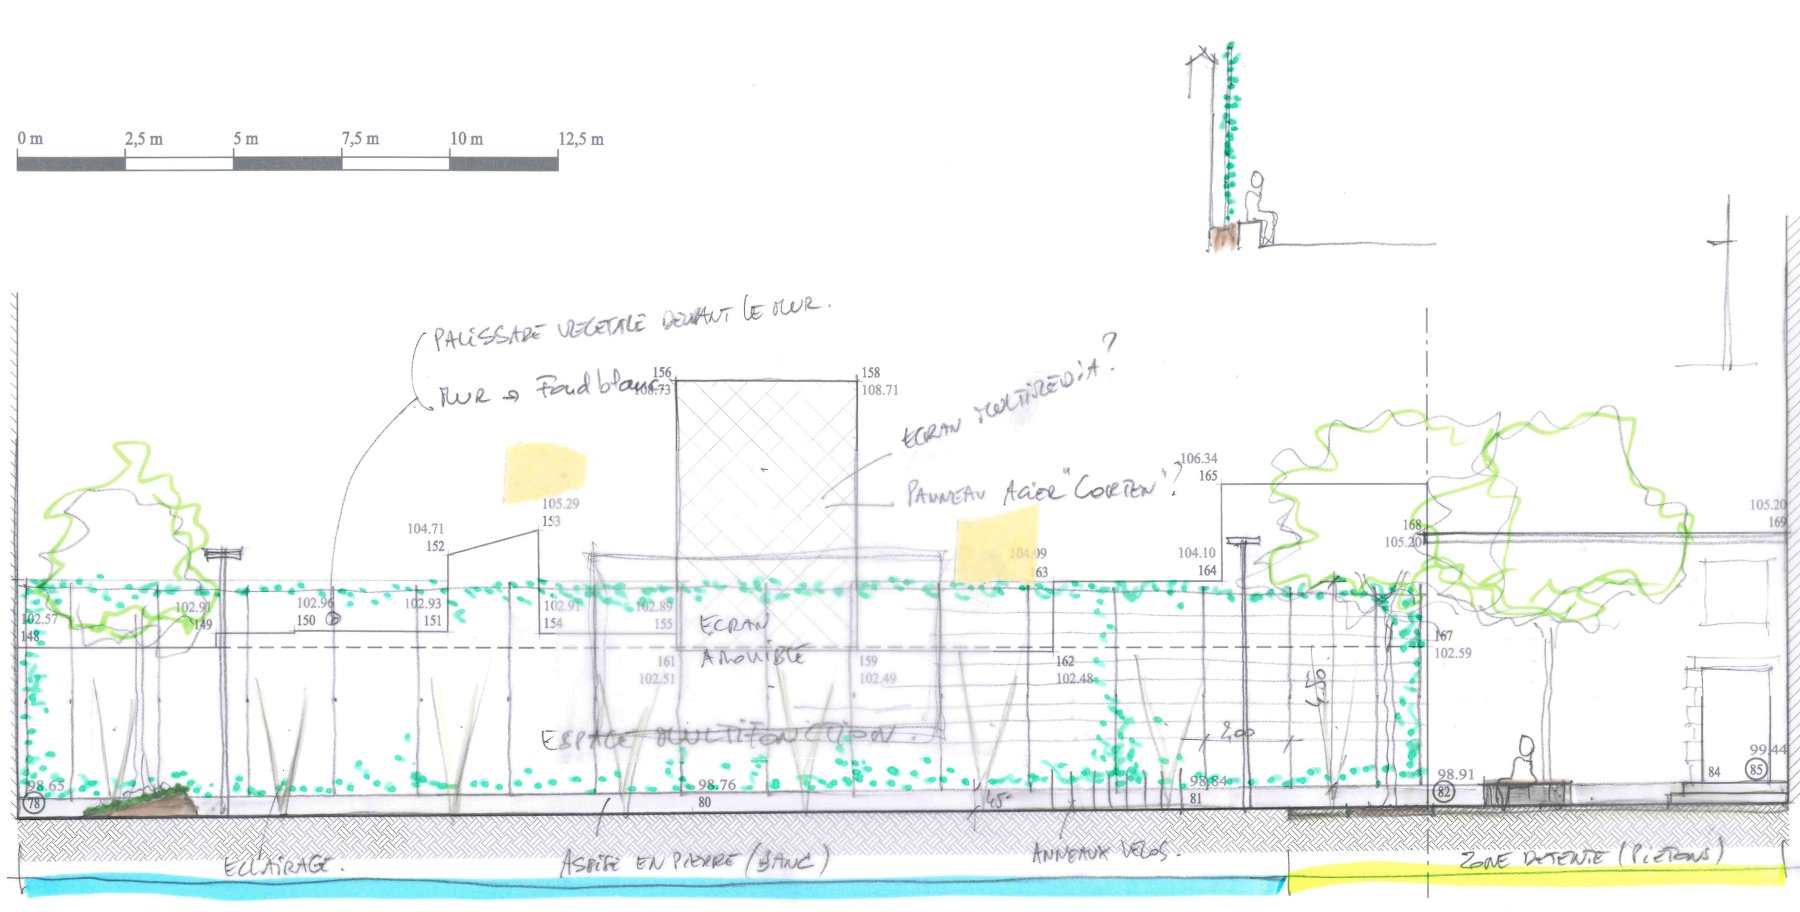 0 m 2,5 m 5 m 7,5 m 10 m 12,5 m
PALISSADE VEGETALE DEVANT LE MUR.
MUR → Fond blanc
156
108.73
158
108.71
ECRAN MULTIMEDIA?
PANNEAU ACIER "CORTEN"?
106.34
165
105.29
153
104.71
152
104.09
63
104.10
164
168
105.20
105.20
169
102.57
148
102.91
149
102.96
150
102.93
151
102.91
154
102.89
155
ECRAN
AMOVIBLE
161
102.51
159
102.49
162
102.48
167
102.59
4,50
2,00
ESPACE MULTIFONCTION.
98.65
78
98.76
80
45
98.84
81
98.91
82
84
99.44
85
ECLAIRAGE.
ASSISE EN PIERRE (BANC)
ANNEAUX VELOS.
ZONE DETENTE (PIETONS)